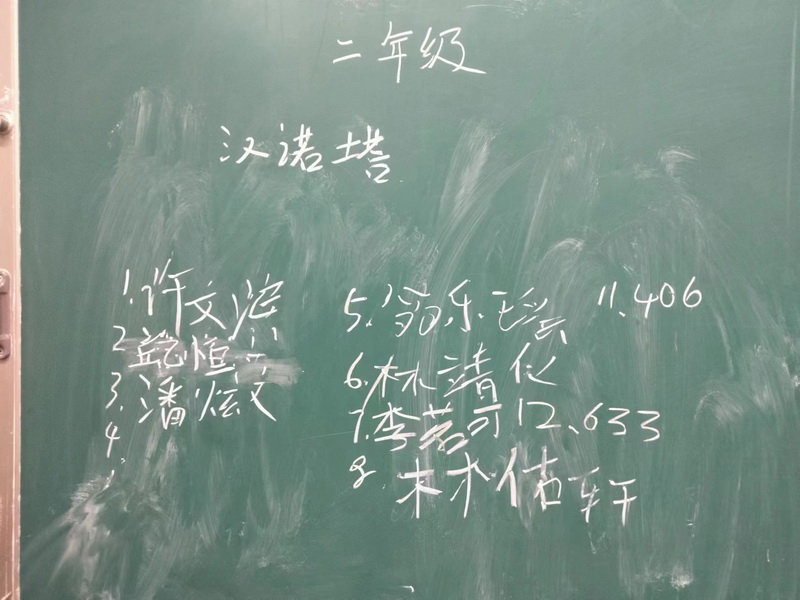 二年级
汉诺塔
1.许文
2
3.潘炫文
4
5.乐瑶 11.406
6.林靖
7.李若可 12.633
8.林佑轩